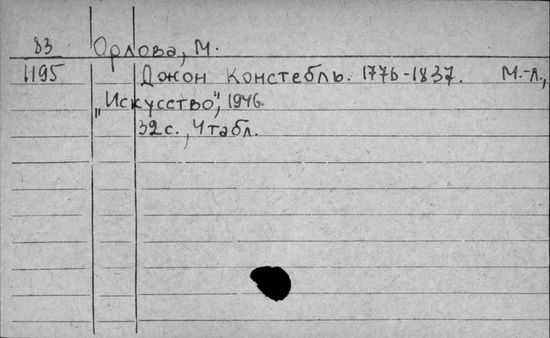 83 Орлова, М.
1195 Джон Констебль. 1776-1837. М.-Л.,
„Искусство", 1946.
32 с., 4 табл.